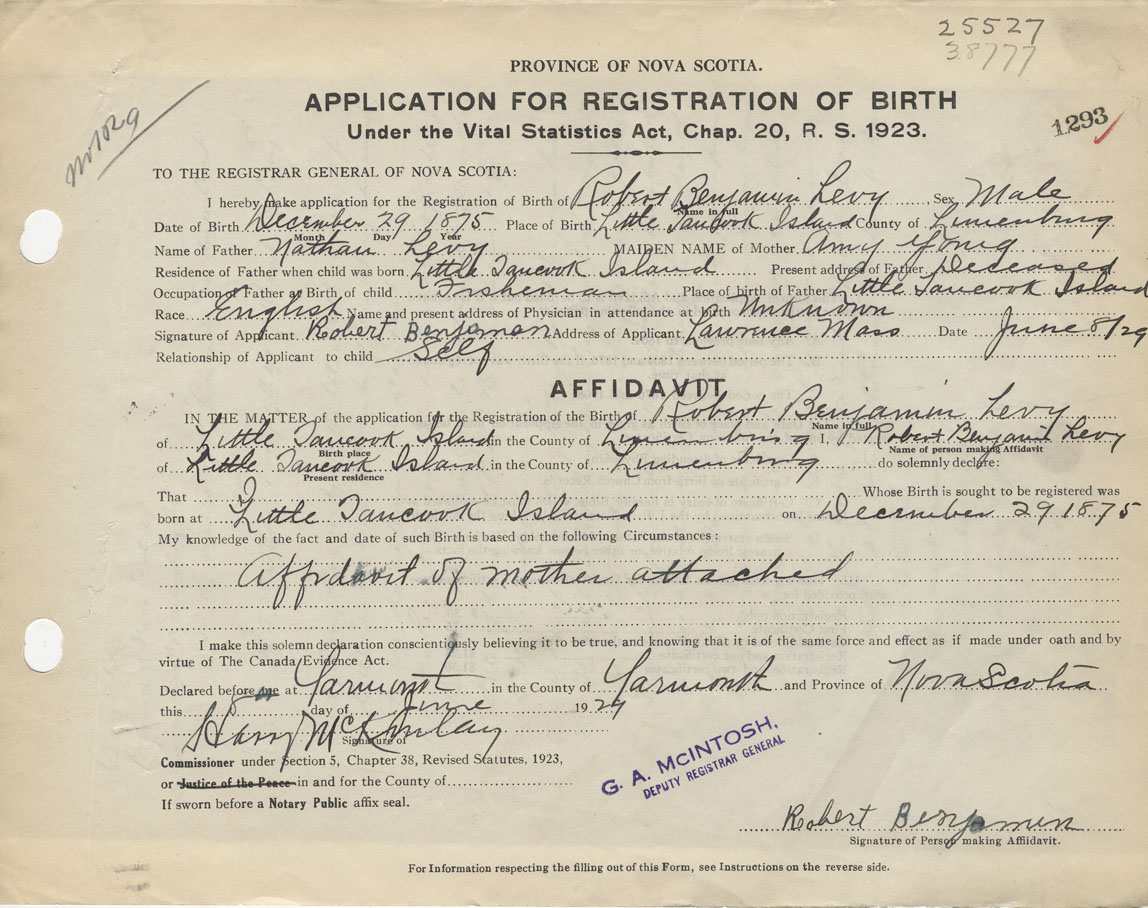 25527
38777
PROVINCE OF NOVA SCOTIA.
APPLICATION FOR REGISTRATION OF BIRTH
Under the Vital Statistics Act, Chap. 20, R. S. 1923.
1293
No 1029
TO THE REGISTRAR GENERAL OF NOVA SCOTIA:
I hereby make application for the Registration of Birth of Robert Benjamin Levy Sex Male
Name in full
Date of Birth December 29 1875 Place of Birth Little Tancook Island County of Lunenburg
Month Day Year
Name of Father Nathan Levy MAIDEN NAME of Mother Amy Yonig
Residence of Father when child was born Little Tancook Island Present address of Father Deceased
Occupation of Father at Birth of child Fisherman Place of birth of Father Little Tancook Island
Race English Name and present address of Physician in attendance at birth Unknown
Signature of Applicant Robert Benjamen Address of Applicant Lawrence Mass Date June 8/29
Relationship of Applicant to child Self
AFFIDAVIT
IN THE MATTER of the application for the Registration of the Birth of Robert Benjamin Levy
Name in full
of Little Tancook Island in the County of Lunenburg I, Robert Benjamin Levy
Birth place Name of person making Affidavit
of Little Tancook Island in the County of Lunenburg do solemnly declare:
Present residence
That I Whose Birth is sought to be registered was
born at Little Tancook Island on December 29 1875
My knowledge of the fact and date of such Birth is based on the following Circumstances:
Affidavit of mother attached
I make this solemn declaration conscientiously believing it to be true, and knowing that it is of the same force and effect as if made under oath and by
virtue of The Canada Evidence Act.
Declared before me at Yarmouth in the County of Yarmouth and Province of Nova Scotia
this 8 day of June 1929
Harry McKinlay
Signature of
Commissioner under Section 5, Chapter 38, Revised Statutes, 1923,
or Justice of the Peace in and for the County of
If sworn before a Notary Public affix seal.
G. A. MCINTOSH,
DEPUTY REGISTRAR GENERAL
Robert Benjamen
Signature of Person making Affiidavit.
For Information respecting the filling out of this Form, see Instructions on the reverse side.